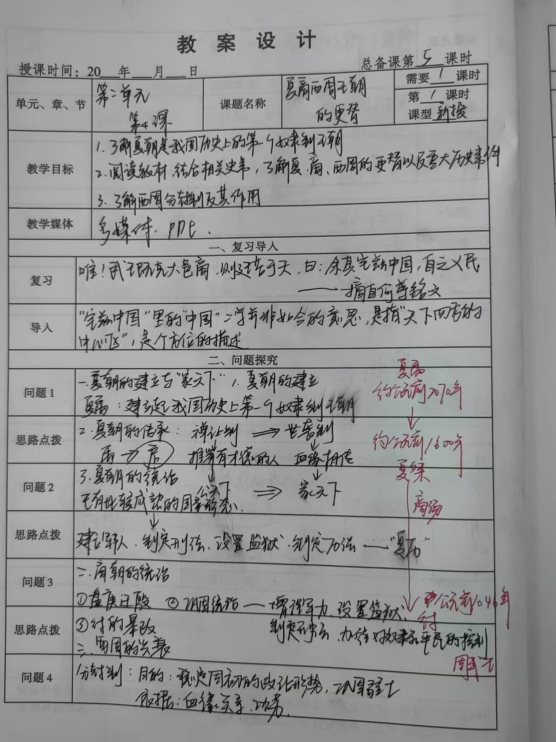 教案设计
授课时间：20 年 月 日
总备课第 5 课时
单元、章、节
第二单元
第4课
课题名称
夏商西周王朝
的更替
需要 1 课时
第 1 课时
课型 新授
教学目标
1.了解夏朝是我国历史上的第一个奴隶制王朝
2.阅读教材，结合相关史事，了解夏、商、西周的更替以及重大历史事件
3.了解西周分封制及其作用
教学媒体
多媒体、
一、复习导入
复习
唯！武王既克大邑商，则廷告于天，曰：余其宅兹中国，自之乂民
——摘自何尊铭文
导入
"宅兹中国"里的"中国"一词并非如今的意思，是指"天下四方的
中心区"，是个方位的描述
二、问题探究
问题1
一.夏朝的建立与"家天下" 1.夏朝的建立
夏禹：建立起我国历史上第一个奴隶制王朝
夏禹
约公元前2070年
思路点拨
2.夏朝的传承：禅让制 ⇒ 世袭制
禹→启 推举有才德的人 血缘相传
约公元前1600年
夏桀
问题2
3.夏朝的统治 公天下 ⇒ 家天下
的国家形态
商汤
思路点拨
建立军队、制定刑法、设置监狱、制定历法 → "夏历"
问题3
二.商朝的统治
①盘庚迁殷 ②巩固统治 — 增强军力 设置监狱、
公元前1046年
纣
思路点拨
③纣的暴政
制定刑法，加强对奴隶和平民的控制
三.西周的兴衰
问题4
分封制：目的：稳定周初的政治形势，巩固疆土
依据：血缘关系、功劳、